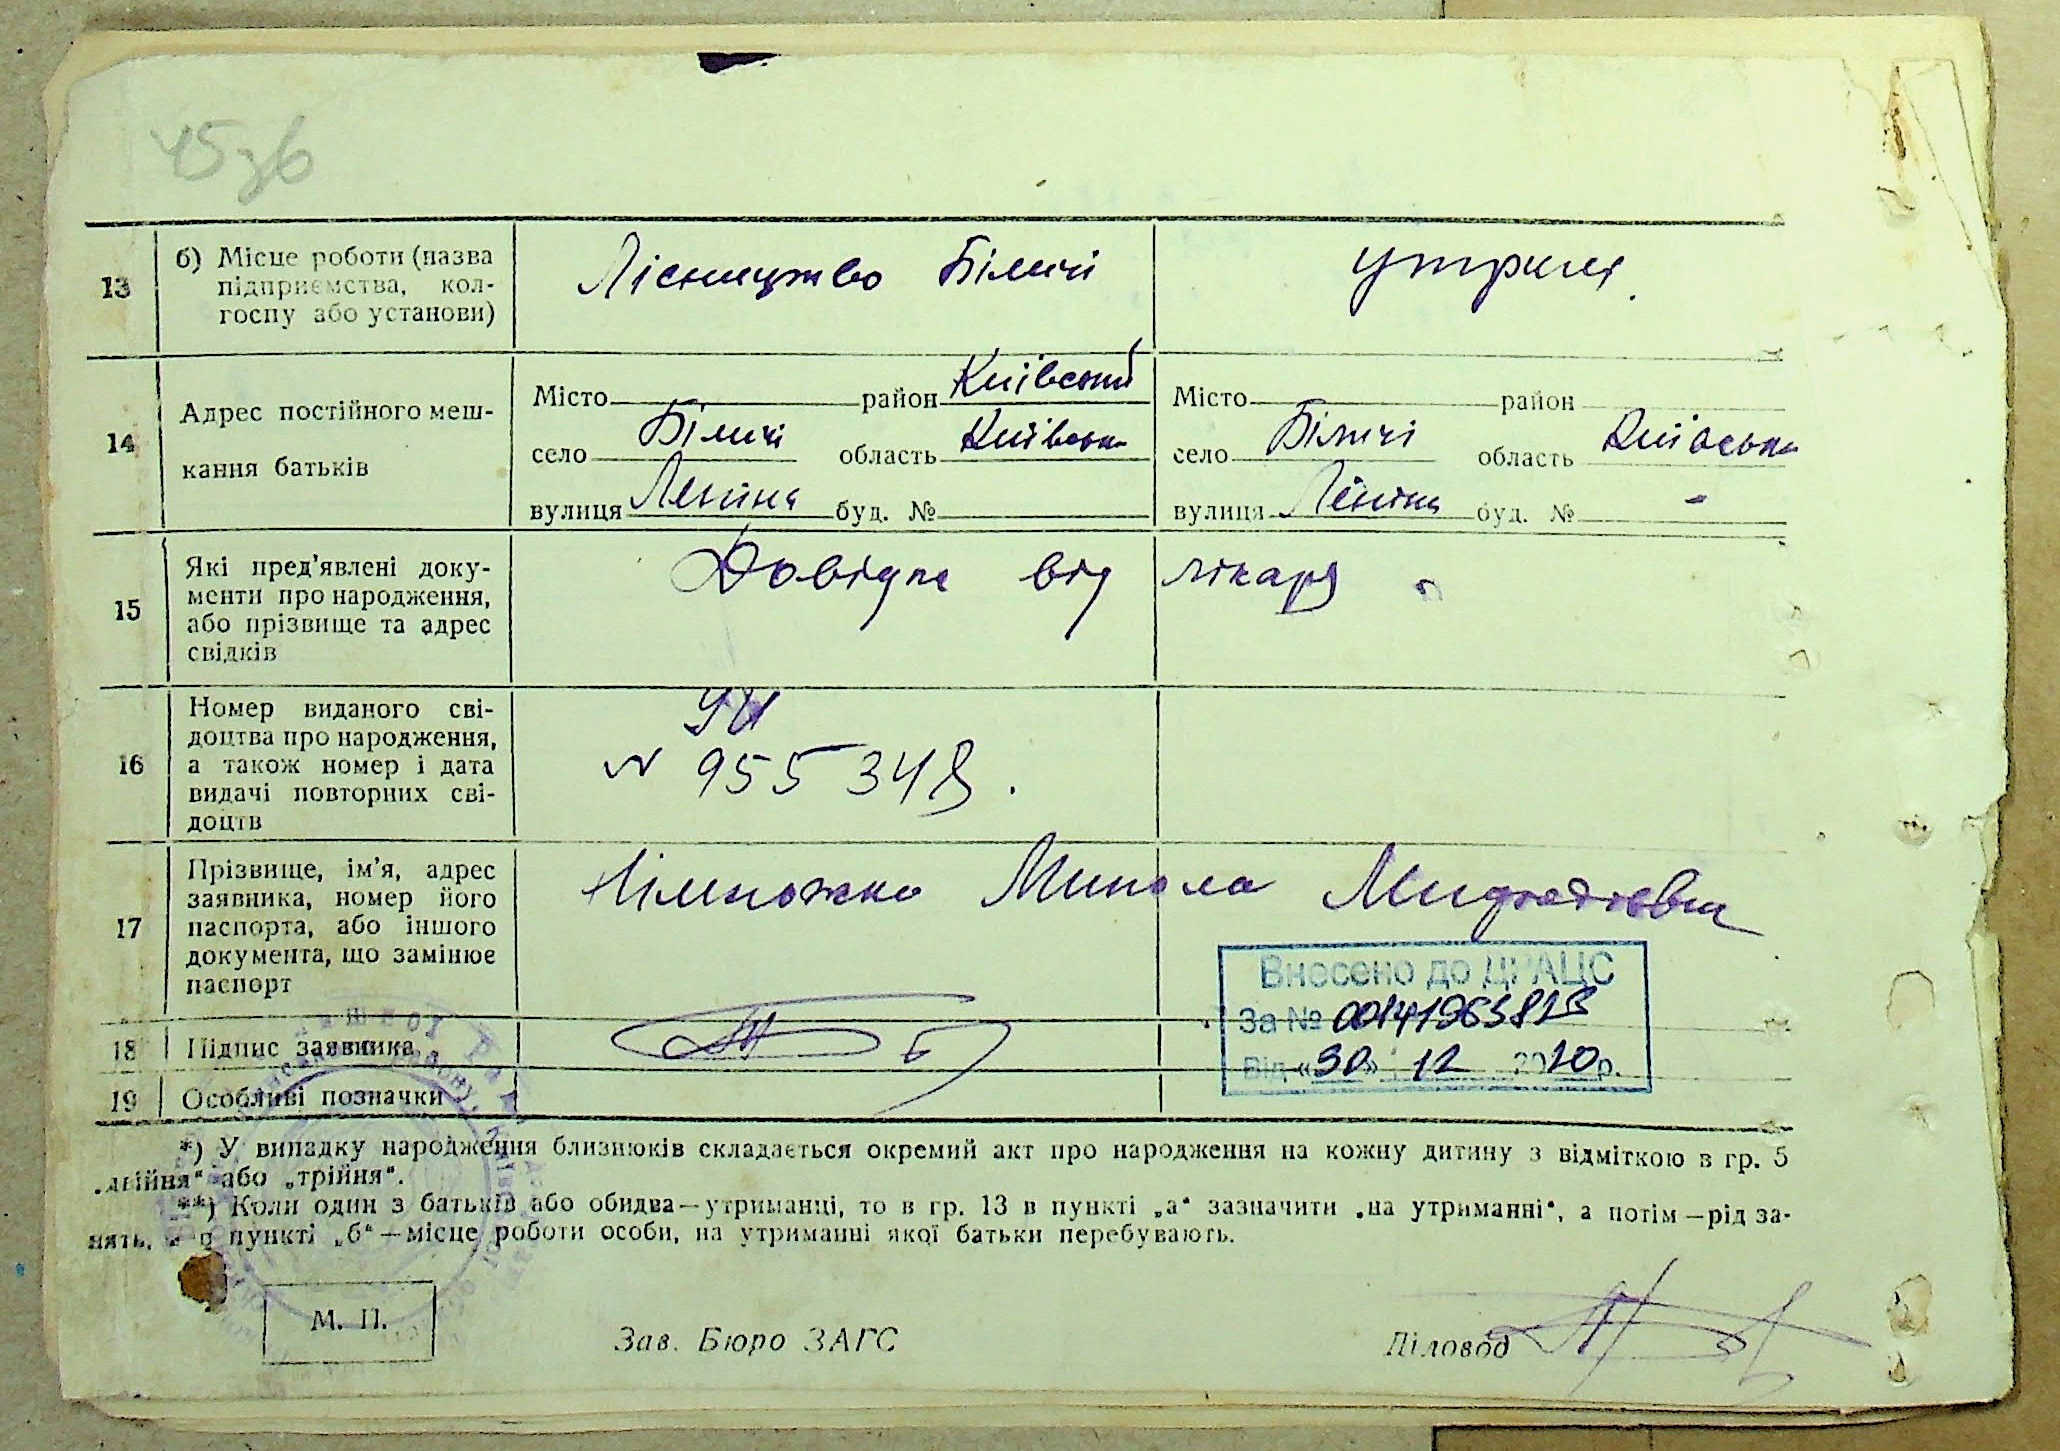 45зв
13 б) Місце роботи (назва
підприємства, кол-
госпу або установи)
Лісництво Біличі
утрим.
14 Адрес постійного меш-
кання батьків
Місто район Київський
село Біличі область Київська
вулиця Леніна буд. №
Місто район
село Біличі область Київська
вулиця Леніна буд. № -
15 Які пред'явлені доку-
менти про народження,
або прізвище та адрес
свідків
Довідка від лікаря
16 Номер виданого сві-
доцтва про народження,
а також номер і дата
видачі повторних сві-
доцтв
УИ
N 955348.
17 Прізвище, ім'я, адрес
заявника, номер його
паспорта, або іншого
документа, що замінює
паспорт
Німножко Микола
Внесено до ДРАЦС
За № 00141963813
Від «30» 12 2020р.
18 Підпис заявника
19 Особливі позначки
*) У випадку народження близнюків складається окремий акт про народження на кожну дитину з відміткою в гр. 5
„двійня“ або „трійня“.
**) Коли один з батьків або обидва—утриманці, то в гр. 13 в пункті „а“ зазначити „на утриманні“, а потім—рід за-
нять, а в пункті „б“—місце роботи особи, на утриманні якої батьки перебувають.
М. П.
Зав. Бюро ЗАГС
Діловод